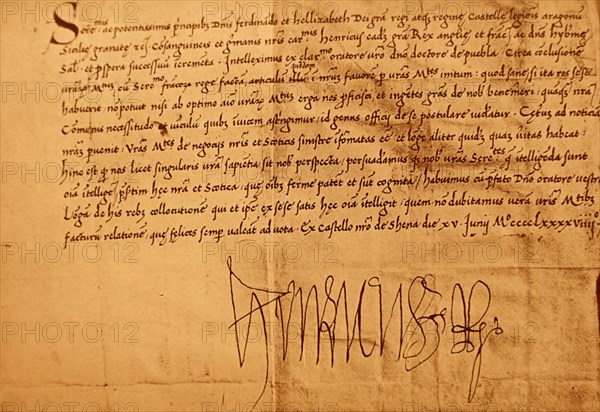 Sere^mis ac potentissimis principibus Dnis Ferdinando et hellizabeth Dei gra regi atq regine Castelle legionis aragonum
Sicilie granate &c. Consanguineis et germanis nris car^mis henricus eadem gra Rex anglie et francie, ac dns hybernie
Sal. et prospera successuum incrementa. Intelleximus ex clar^mo oratore vro dno doctore de puebla. Circa conclusione
vrarum M^tum cu Sere^mo francorum rege factam, articulum quendam illic in nrum favorem per vras M^tes initum: quod sane si ita res sese
habuerit non potuit nisi ab optimo aio vrarum M^tum erga nos proficisci, et ingentes gras de nob benemeri, quaque nra
Comunis necessitudo et vinculum quibus invicem astringimur, id genus officij de se postulare videatur. Ceterum ad noticiam
nram puenit, vras M^tes de negocijs nris et Scoticis sinistre informatas esse et longe aliter quidem quam veritas habeat:
hinc est qd nos licet singularis vra sapientia sit nob perspecta, persuadeamusque nob vras Sere^tes que intelligenda sunt
oia intelligere, presertim hec nra et Scotica, que oibus ferme patent et sunt cognita, habuimus cum prefato Dno oratore vestro
Longam de his rebus collocutionem qui et ipse ex sese satis hec oia intelligit, quem no dubitamus veram vris M^tibus
facturum relationem, que felices semper valeat ad vota. Ex Castello nro de Shena die xv. Junij M^o cccclxxxxviiij^o